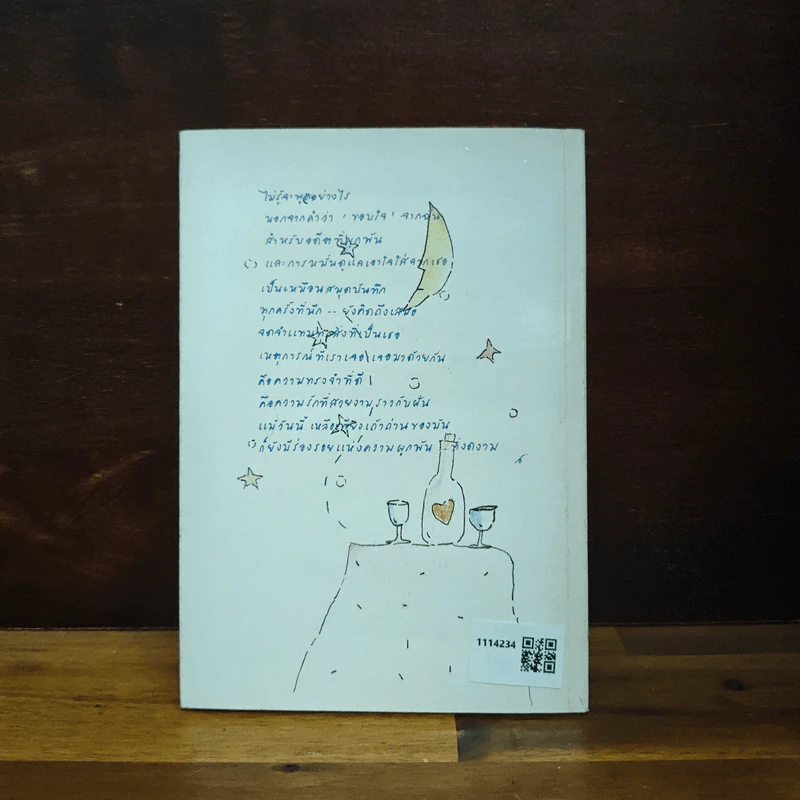 ไม่รู้จะพูดอย่างไร
นอกจากคำว่า ' ขอบใจ ' จากฉัน
สำหรับอดีตที่ผูกพัน
และการหมั่นดูแลเอาใจใส่จากเธอ
เป็นเหมือนสมุดบันทึก
ทุกครั้งที่นึก -- ยังคิดถึงเสมอ
จดจำแทนทุกสิ่งที่เป็นเธอ
เหตุการณ์ที่เราเจอ เจอมาด้วยกัน
คือความทรงจำที่ดี
คือความรักที่สวยงามราวกับฝัน
แม้วันนี้ เหลือเพียงเถ้าถ่านของมัน
ก็ยังมีร่องรอยแห่งความผูกพัน -- ที่งดงาม
1114234